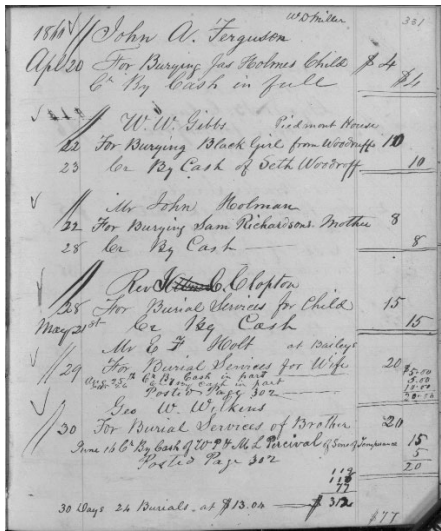 W D Miller
331
1861 John A. Ferguson
Apl 20 For Burying Jas Holmes Child $ 4
Cr By Cash in full $4
W. W. Gibbs Piedmont House
22 For Burying Black Girl from Woodruffs 10
23 Cr By Cash of Seth Woodroff 10
Mr John Holman
22 For Burying Sam Richardsons Mother 8
28 Cr By Cash 8
Rev C. Clopton
28 For Burial Services for Child 15
May 21st Cr By Cash 15
Mr E F Holt at Baileys
29 For Burial Services for Wife 20
Cr By Cash in part 5.00
Cr By Cash in part 5.00
Posted Page 302 10.00
20.00
Geo W. Wilkins
30 For Burial Services of Brother 20
June 13 Cr By Cash of W P & M L Percival of Sons of Temperance 15
Posted Page 302 5
20
112
77
30 Days 24 Burials at $13.04 $312
$77